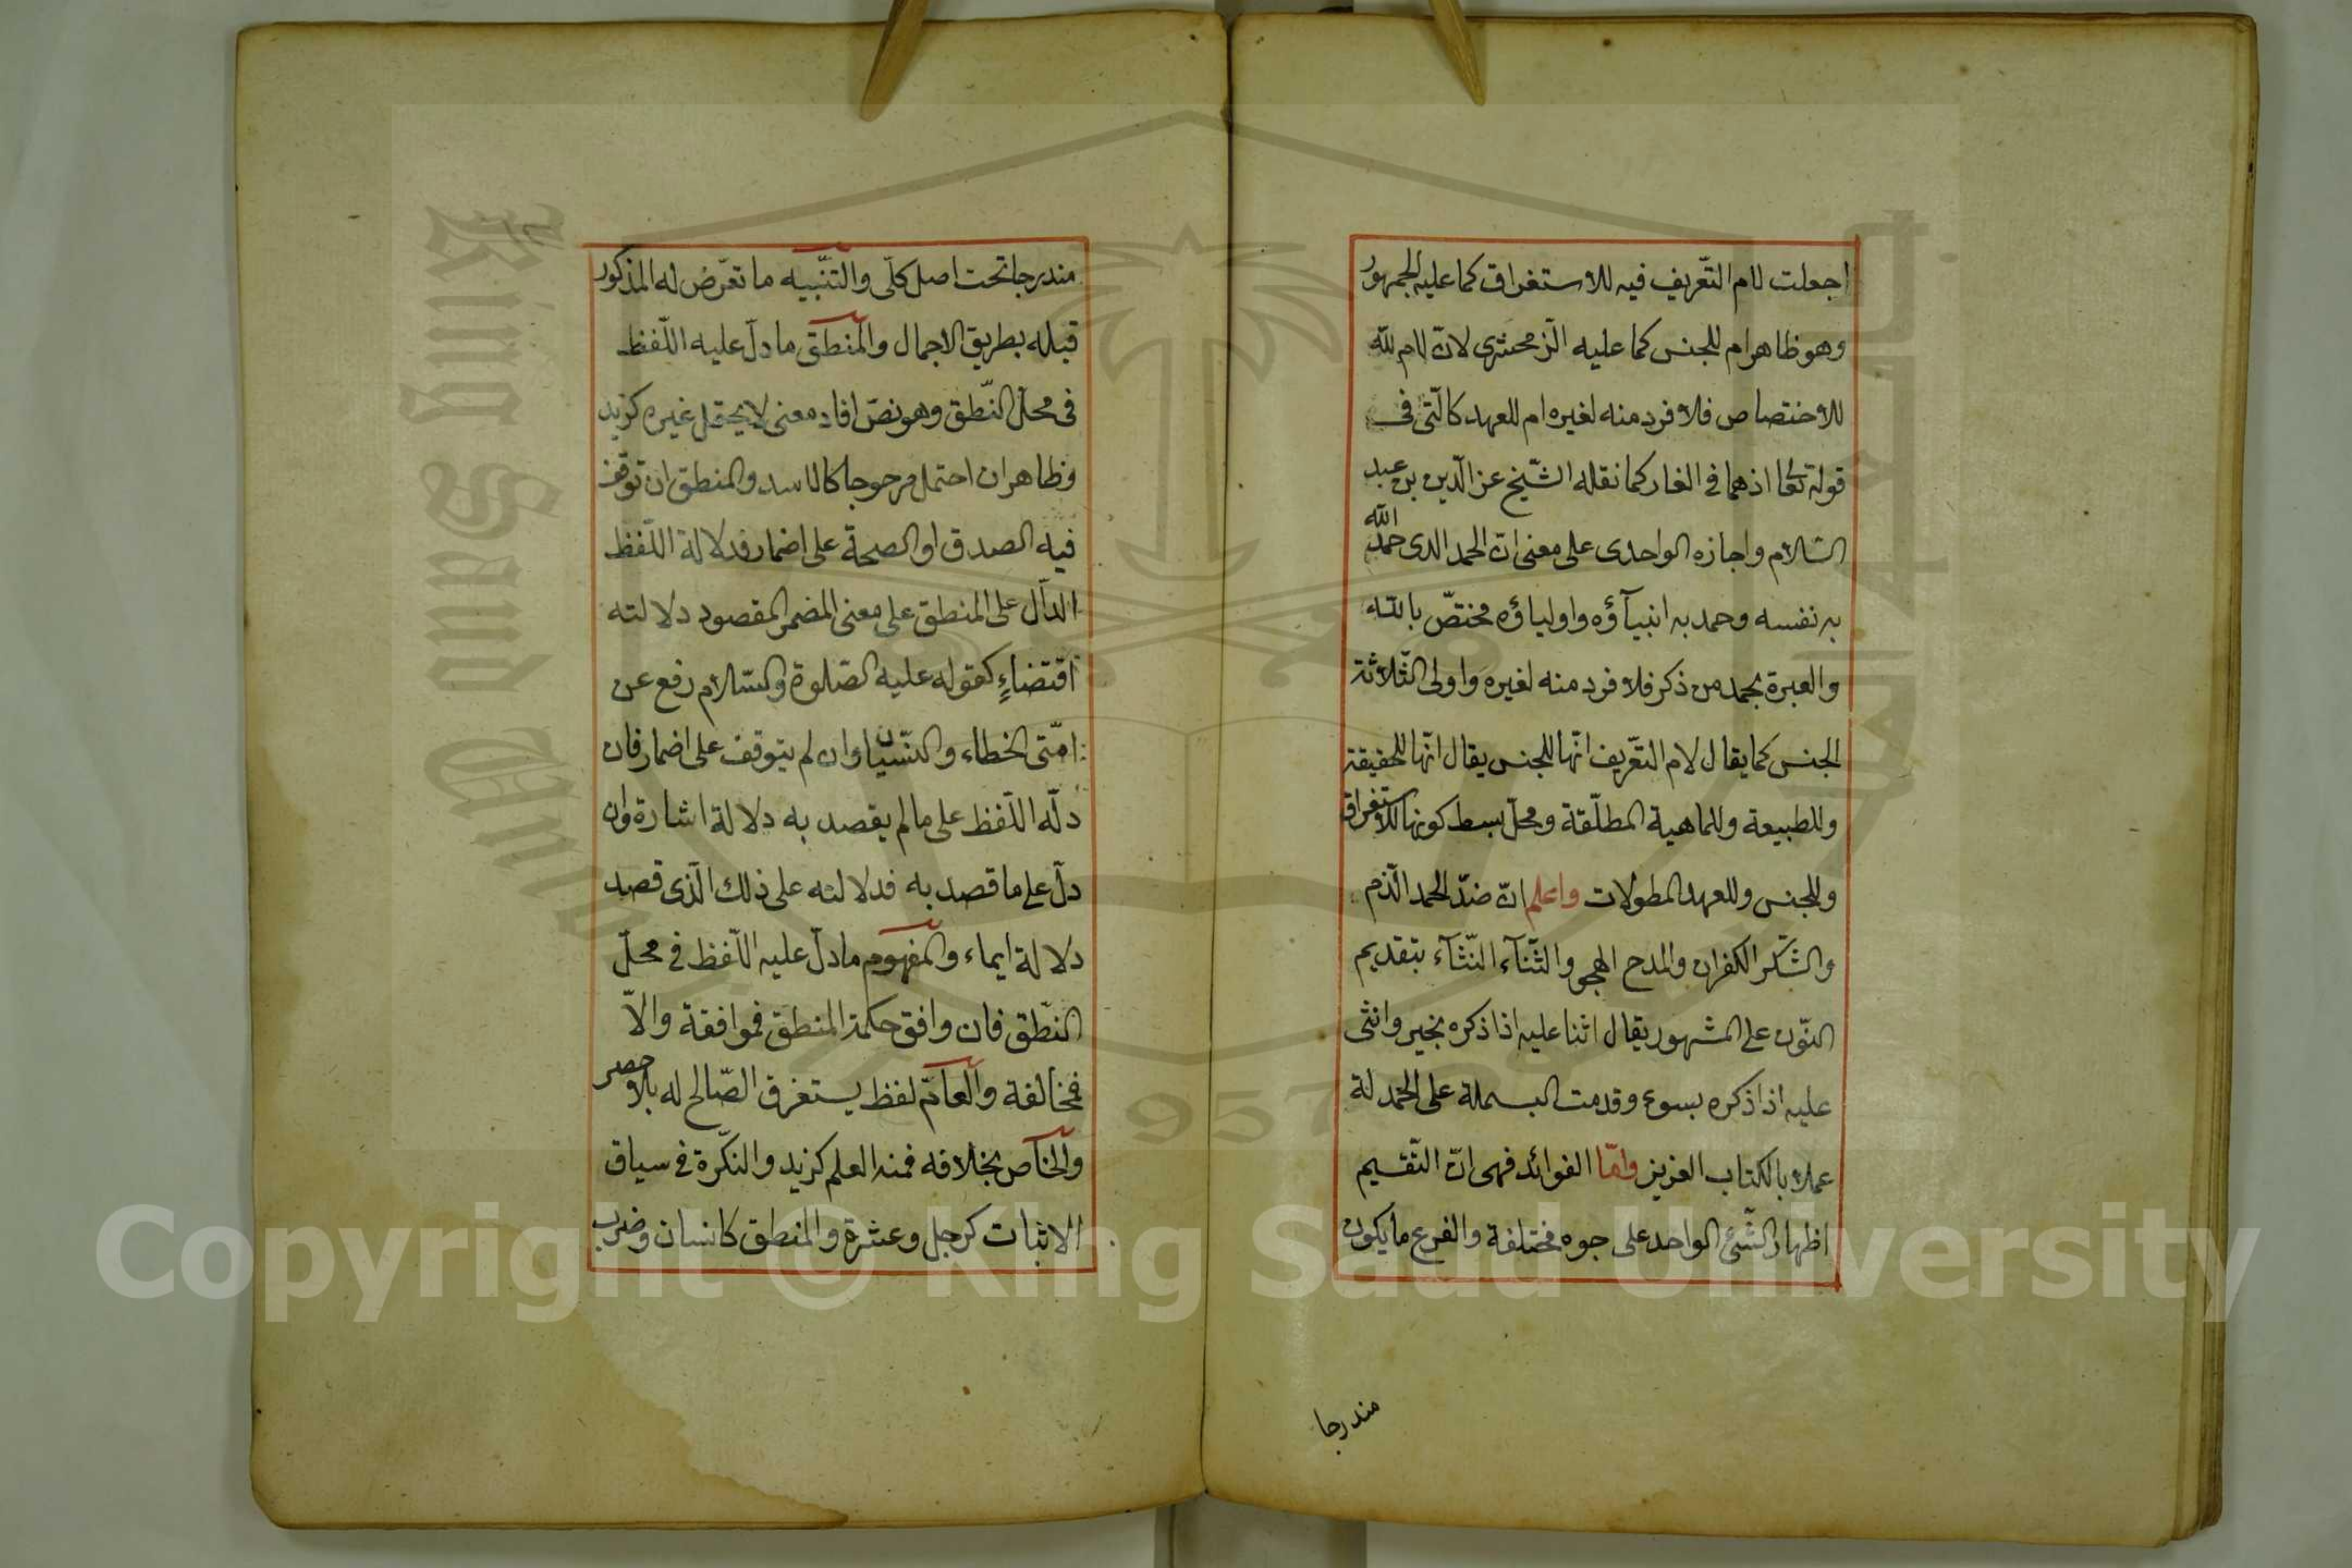 اجعلت لام التّعريف فيه للاستغراق كما عليه الجمهور
وهو ظاهر ام للجنس كما عليه الزمخشرى لانّ لام لله
للاختصاص فلا فرد منه لغيره ام للعهد كالّتى فى
قوله تعا اذ هما فى الغار كما نقله الشّيخ عز الدّين بن عبد
السّلام واجازه الواحدى على معنى انّ الحمد الدى حمد الله
به نفسه وحمد به انبيآؤه واولياؤه مختصّ بالله
والعبرة بحمد من ذكر فلا فرد منه لغيره واولى الثّلاثة
الجنس كما يقال لام التّعريف انّها للجنس يقال انّها للحقيقة
وللطبيعة وللماهية المطلّقة ومحلّ بسط كونها للاستغراق
وللجنس وللعهد المطولات واعلم انّ ضدّ الحمد الذّم
والشّكر الكفران والمدح الهجو والثّنآء النّثآء بتقديم
النّون على المشهور يقال اثنا عليه اذا ذكره بخير وانثى
عليه اذا ذكره بسوء وقدمت البسملة على الحمد لة
عملا بالكتاب العزيز وامّا الفوائد فهى انّ التّقسيم
اظهار الشّئ الواحد على جوه مختلفة والفرع ما يكون
مندرجا
مندرجا تحت اصل كلّى والتنّبيه ما تعّرض له المذكور
قبله بطريق الاجمال والمنطق ما دلّ عليه اللّفظ
فى محلّ النّطق وهو نصّ افاد معنى لا يحتمل غيره كزيد
وظاهر ان احتمل مرجوحا كالاسد والمنطق ان توقف
فيه الصدق او الصحة على اضمار فدلالة اللّفظ
الدآل على المنطق على معنى المضمر المقصود دلالته
اقتضاءٍ كقوله عليه الصّلوة والسّلام رفع عن
امّتى الخطاء والنّسيان وان لم يتوقف على اضمار فان
دلّه اللّفظ على ما لم يقصد به دلالة اشارة وان
دلّ على ما قصد به فدلالته على ذلك الّذى قصد
دلالة ايماء والمفهوم ما دلّ عليه اللّفظ فى محلّ
النّطق فان وافق حكمة المنطق فموافقة والاّ
فمخالفة والعآمّ لفظ يستغرق الصّالح له بلا حصر
والخآص بخلافه فمنه العلم كزيد والنكّرة فى سياق
الاثبات كرجل وعشرة والمنطق كانسان وضرب
King Saud University
1957
Copyright © King Saud University